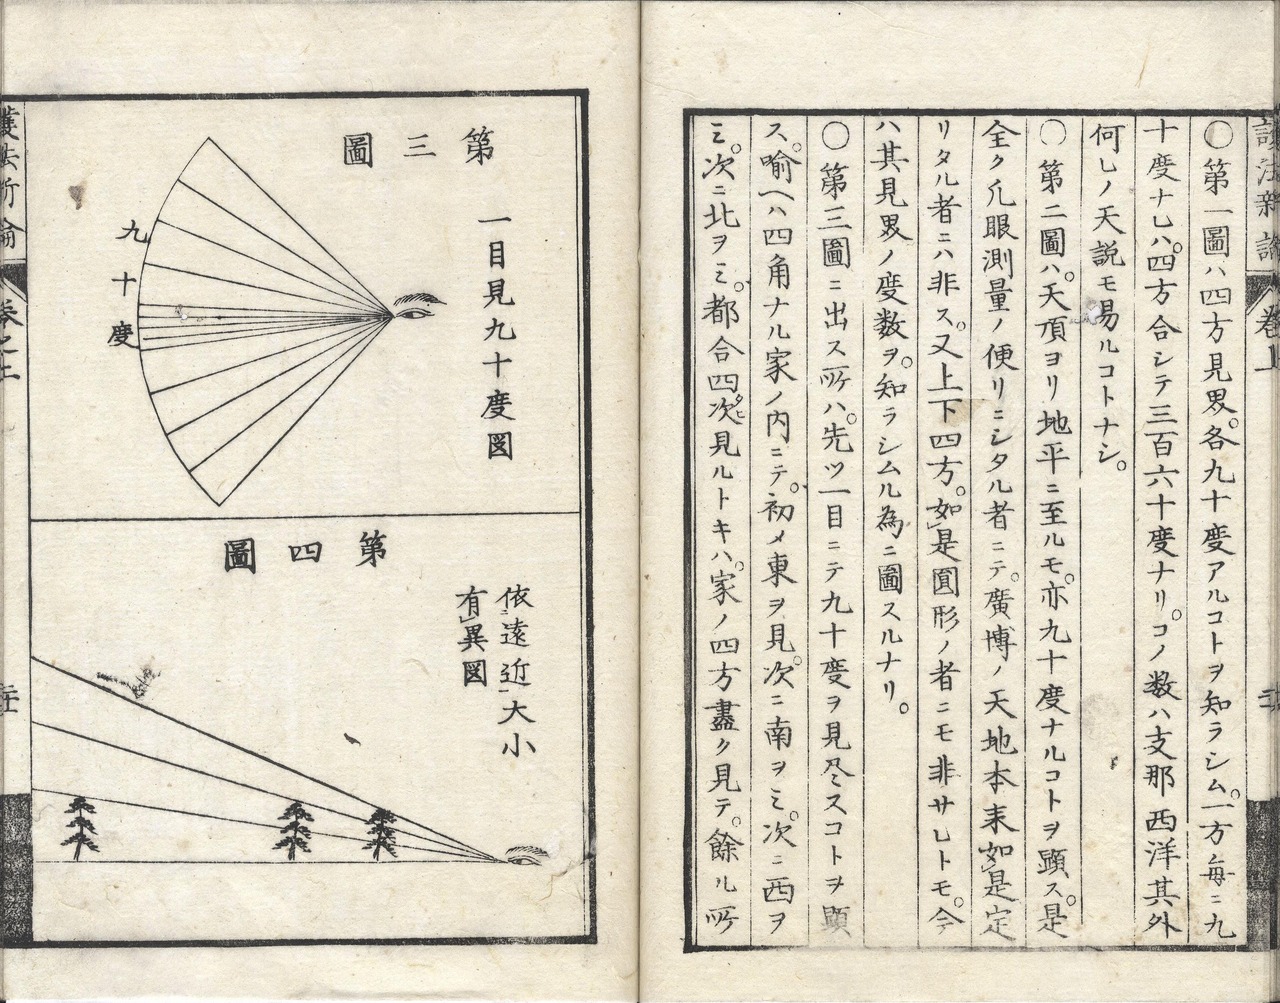 ○第一圖ハ四方見界。各九十度アルコトヲ知ラシム。一方毎ニ九
十度ナレハ。四方合シテ三百六十度ナリ。コノ数ハ支那西洋其外
何レノ天説モ易ルコトナシ。
○第二圖ハ。天頂ヨリ地平ニ至ルモ。亦九十度ナルコトヲ顕ス。是
全ク凡眼測量ノ便リニシタル者ニテ。廣博ノ天地本来如是定
リタル者ニハ非ス。又上下四方。如是圓形ノ者ニモ非サレトモ。今
ハ其見界ノ度数ヲ。知ラシムル為ニ圖スルナリ。
○第三圖ニ出ス所ハ。先ツ一目ニテ九十度ヲ見尽スコトヲ顕
ス。喻ヘハ四角ナル家ノ内ニテ。初メ東ヲ見。次ニ南ヲミ。次ニ西ヲ
ミ。次ニ北ヲミ。都合四次見ルトキハ。家ノ四方盡ク見テ。餘ル所
タヒ
護法新論
卷上
第三圖
一目見九十度図
九十度
第四圖
依遠近大小
有異図